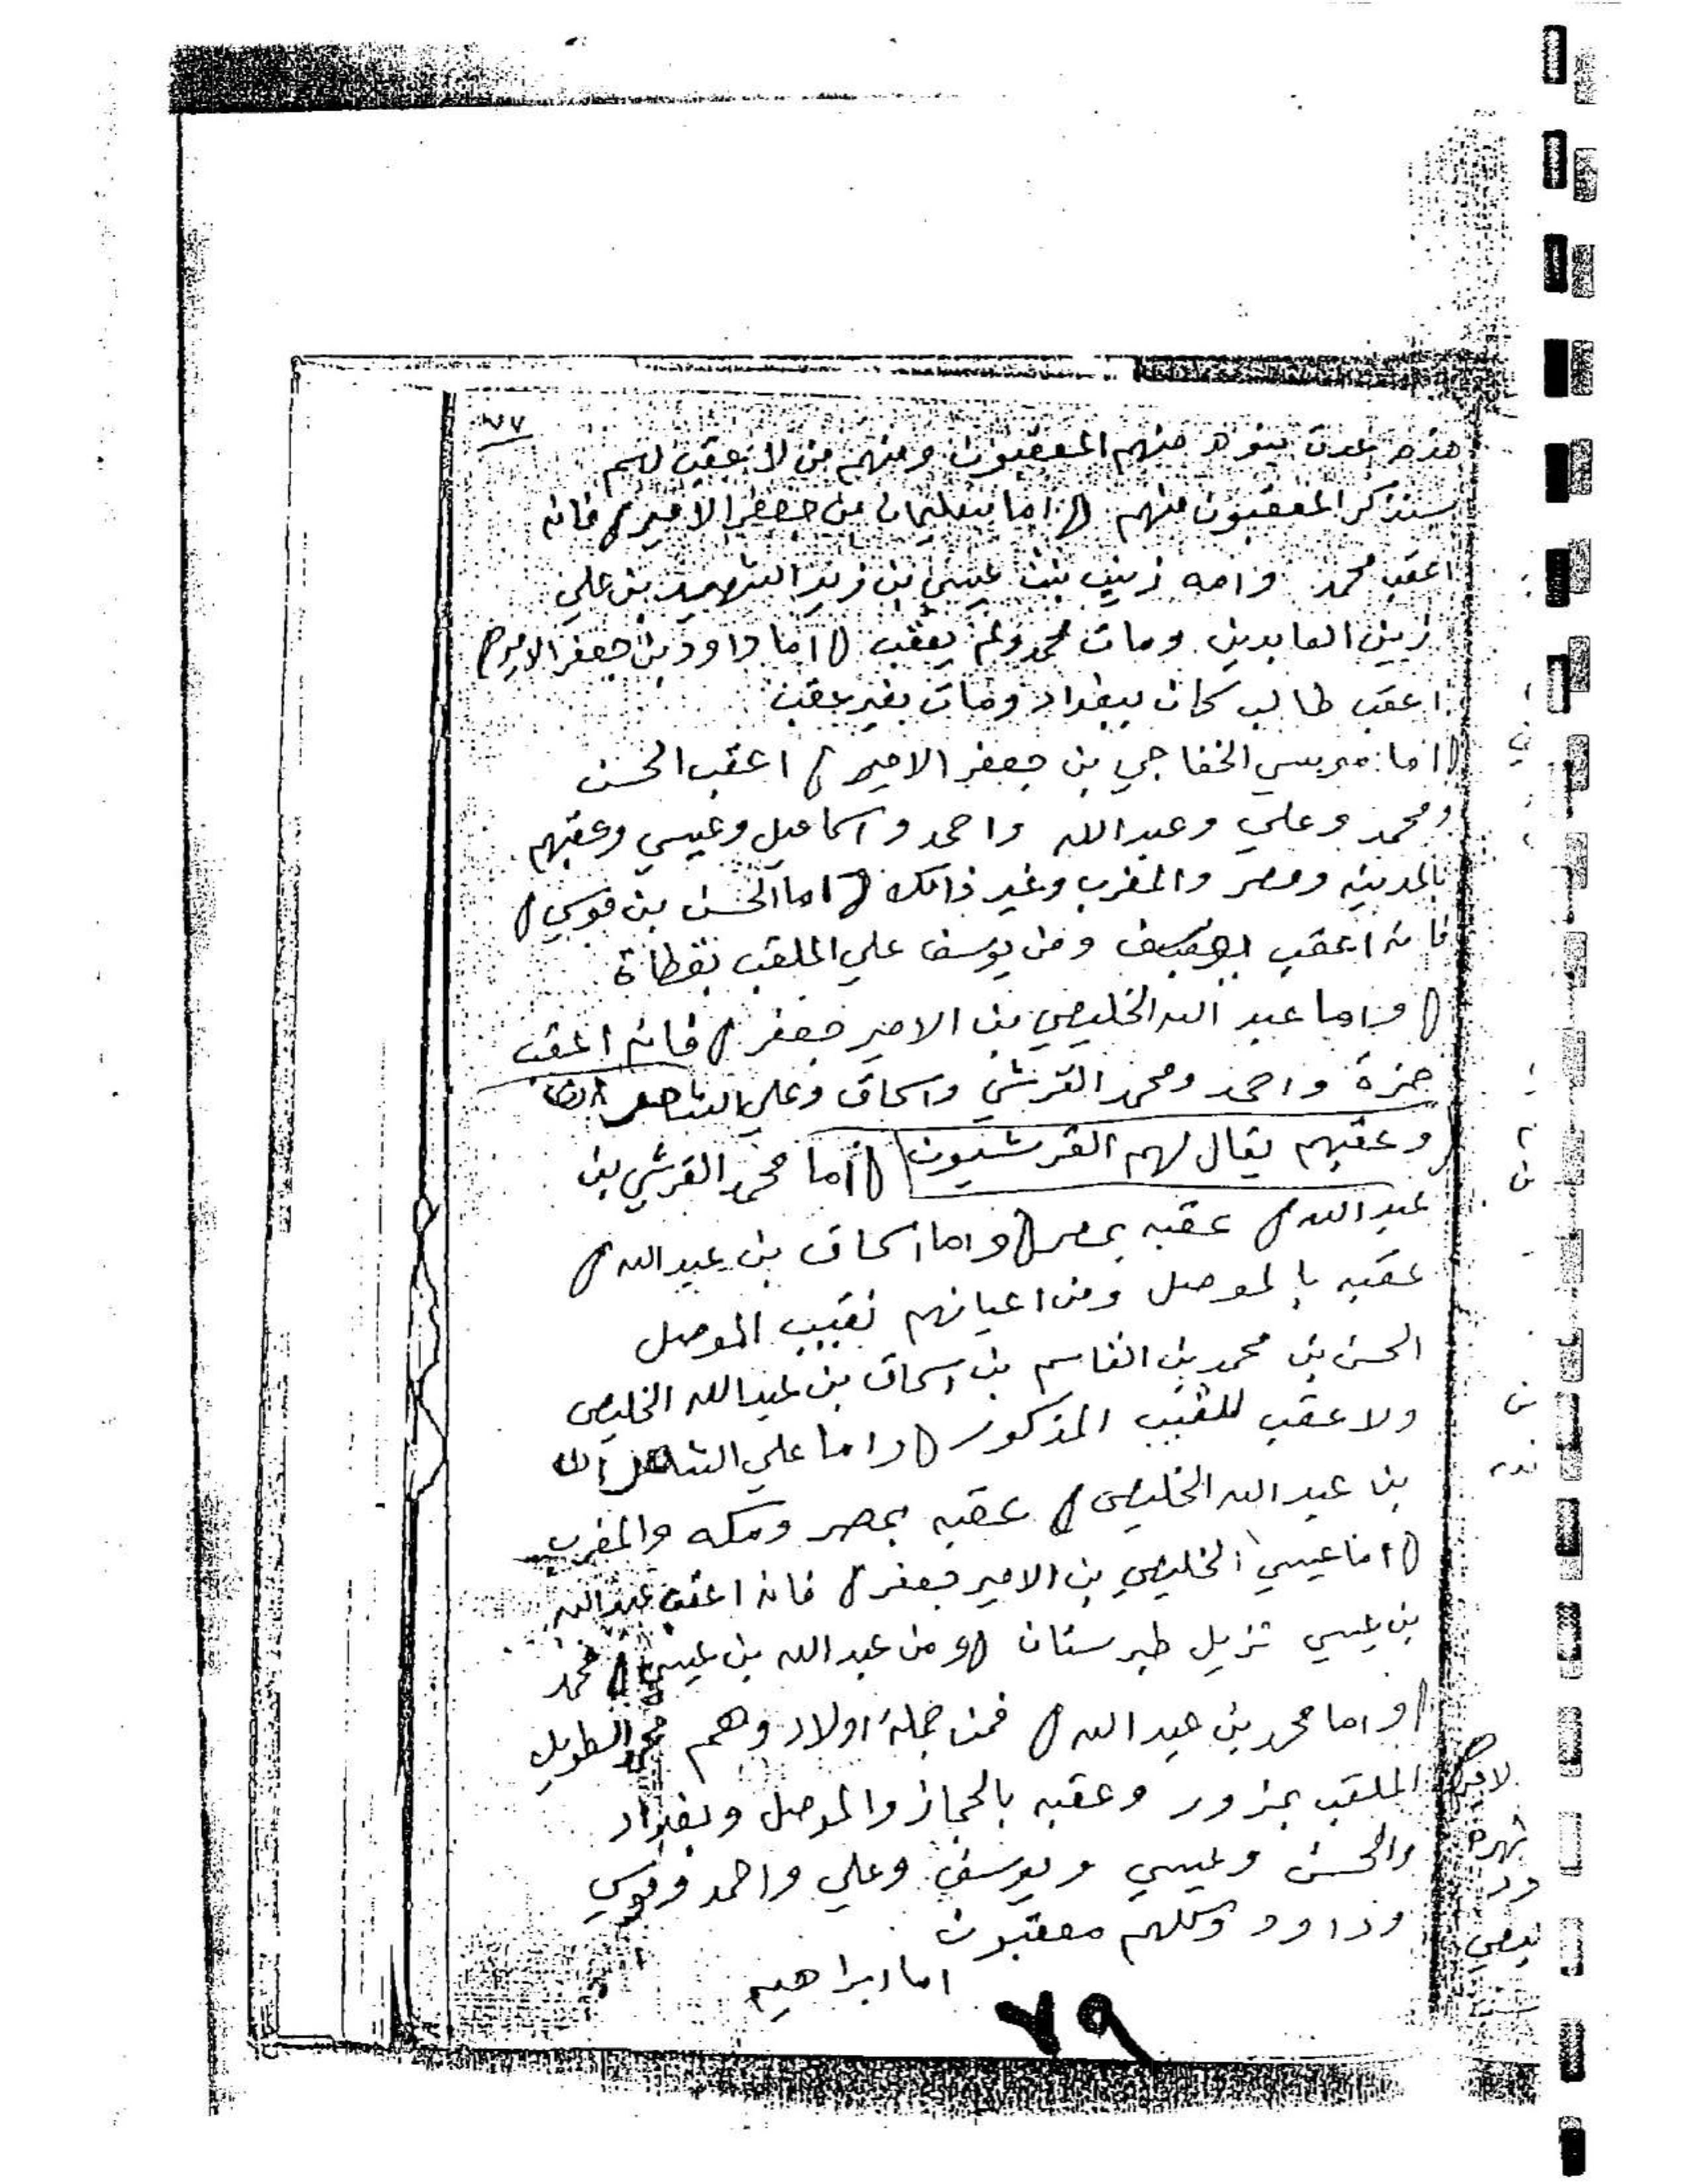 ٧٧
هذه عدة بنوه منهم المعقبون ومنهم من لا عقب لهم
سنذكر المعقبون منهم () اما سليمان بن جعفر الامير () فانه
اعقب محمد وامه زينب بنت عيسى بن زيد الشهيد بن علي
زين العابدين ومات محمد ولم يعقب () اما داوود بن جعفر الامير ()
اعقب طالب كان ببغداد ومات بغير عقب
() اما موسي الخفاجي بن جعفر الامير () اعقب الحسن
ومحمد وعلي وعبدالله واحمد واسماعيل وعيسي وعقبهم
بالمدينه ومصر والمغرب وغير ذالك () اما الحسن بن موسي ()
فانه اعقب يوسف ومن يوسف علي الملقب بقطاة
() واما عبد الله الخليصي بن الامير جعفر () فانه اعقب
حمزة واحمد ومحمد القرشي واسحاق وعلي الشاعر
وعقبهم يقال لهم القرشيون () اما محمد القرشي بن
عبدالله () عقبه بمصر () واما اسحاق بن عبدالله ()
عقبه بالموصل ومن اعيانهم نقيب الموصل
الحسن بن محمد بن القاسم بن اسحاق بن عبدالله الخليصي
ولا عقب للنقيب المذكور () واما علي الشاعر
بن عبدالله الخليصي () عقبه بمصر ومكه والمغرب
() اما عيسي الخليصي بن الامير جعفر () فانه اعقب عبدالله
بن عيسي نزيل طبرستان () ومن عبدالله بن عيسي () محمد
() واما محمد بن عبدالله () فمن جملة اولاد وهم محمد الطويل
الملقب بمزور وعقبه بالحجاز والموصل وبغداد
والحسن وعيسي ويوسف وعلي واحمد وموسي
وداوود وكلهم معقبون
اما ابراهيم
٧٩